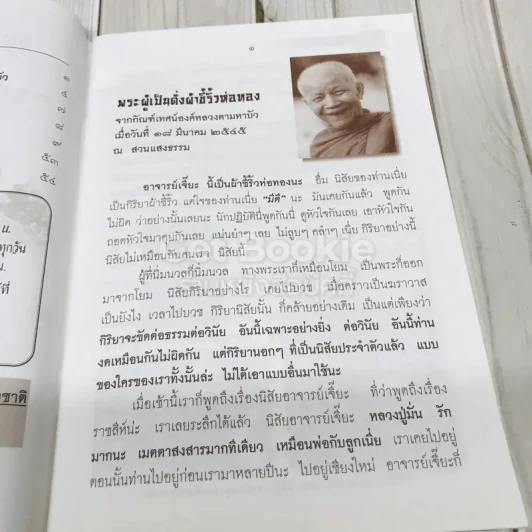 ๑
พระผู้เป็นดั่งผ้าขี้ริ้วห่อทอง
จากกัณฑ์เทศน์องค์หลวงตามหาบัว
เมื่อวันที่ ๑๘ มีนาคม ๒๕๔๕
ณ สวนแสงธรรม
อาจารย์เจี๊ยะ นี้เป็นผ้าขี้ริ้วห่อทองนะ อืม นิสัยของท่านเนี่ย
เป็นกิริยาผ้าขี้ริ้ว แต่ใจของท่านเนี่ย "มีดี" นะ มันเคยกันแล้ว พูดกัน
ไม่ผิด ว่าอย่างนั้นเลยนะ นักปฏิบัตินี่พูดกันนี้ ดูหัวใจกันเลย เอาหัวใจกัน
ถอดหัวใจมาดูกันเลย แม่นยำๆ เลย ไม่ลูบๆ คลำๆ เนี่ย กิริยาอย่างนี้
นิสัยไม่เหมือนกันคนเรา นิสัยนี้
ผู้ที่นิ่มนวลก็นิ่มนวล ทางพระเราก็เหมือนโยม เป็นพระก็ออก
มาจากโยม นิสัยกิริยาอย่างไร เคยไปบวช เมื่อคราวเป็นฆราวาส
เป็นยังไง เวลาไปบวช กิริยานิสัยนั้น ก็คล้ายอย่างเดิม เป็นแต่เพียงว่า
กิริยาจะขัดต่อธรรมต่อวินัย อันนี้เฉพาะอย่างยิ่ง ต่อวินัย อันนี้ท่าน
งดเหมือนกันไม่ผิดกัน แต่กิริยานอกๆ ที่เป็นนิสัยประจำตัวแล้ว แบบ
ของใครของเราทั้งนั้นล่ะ ไม่ได้เอาแบบอื่นมาใช้นะ
เมื่อเช้านี้เราก็พูดถึงเรื่องนิสัยอาจารย์เจี๊ยะ ที่ว่าพูดถึงเรื่อง
ราชสีห์น่ะ เราเลยระลึกได้แล้ว นิสัยอาจารย์เจี๊ยะ หลวงปู่มั่น รัก
มากนะ เมตตาสงสารมากทีเดียว เหมือนพ่อกับลูกเนี่ย เราเคยไปอยู่
ตอนนั้นท่านไปอยู่ก่อนเรามาหลายปีนะ ไปอยู่เชียงใหม่ อาจารย์เจี๊ยะก็